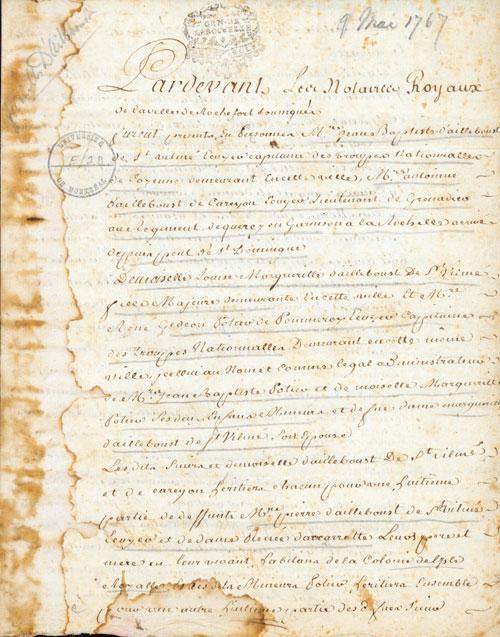 9 Mai 1767
GEN. DE
LA ROCHELLE
UNIVERSITÉ
E/20
DE MONTRÉAL
Pardevant Les Notaires Royaux
de la ville de Rochefort soussignés
furent presents en personnes Mre Jean Baptiste dailleboust
de St vilmé Ecuyer capitaine des trouppes Nationnalles
de Cayenne demeurant en cette ville, Mre antoinne
dailleboust de Cerÿon Ecuyer Lieutenant de Grenadiers
au Regiment de quercy en Garnison a la Rochelle arrivé
depuis peu de St Domingue
Demoiselle Louise Margueritte dailleboust De St Vilmé
fille Majeure demeurante en cette ville Et Mre
René Gedeon Potier de Pommeroy Ecuyer Cappitaine
des Trouppes Nationnalles Demeurant en cette même
ville, au Nom et Comme legal administrateur
de Mre Jean Baptiste Potier et de moiselle Margueritte
Potier Ses deux Enfans Mineurs et de feue dame margueritte
dailleboust de St Vilmé Son Epouse
Les dits Sieurs et demoiselle dailleboust De St vilmé
et de cereyon heritiers chacun pour une huitieme
partie de deffunts Mre pierre dailleboust de St vilmé
Ecuyer et de dame Renée Leurs pere et
mere en leur vivant habitans de la Colonie de l'isle
Royalle Mineurs Potier heritiers Ensemble
pour une autre huitieme partie des d. feus Sieur